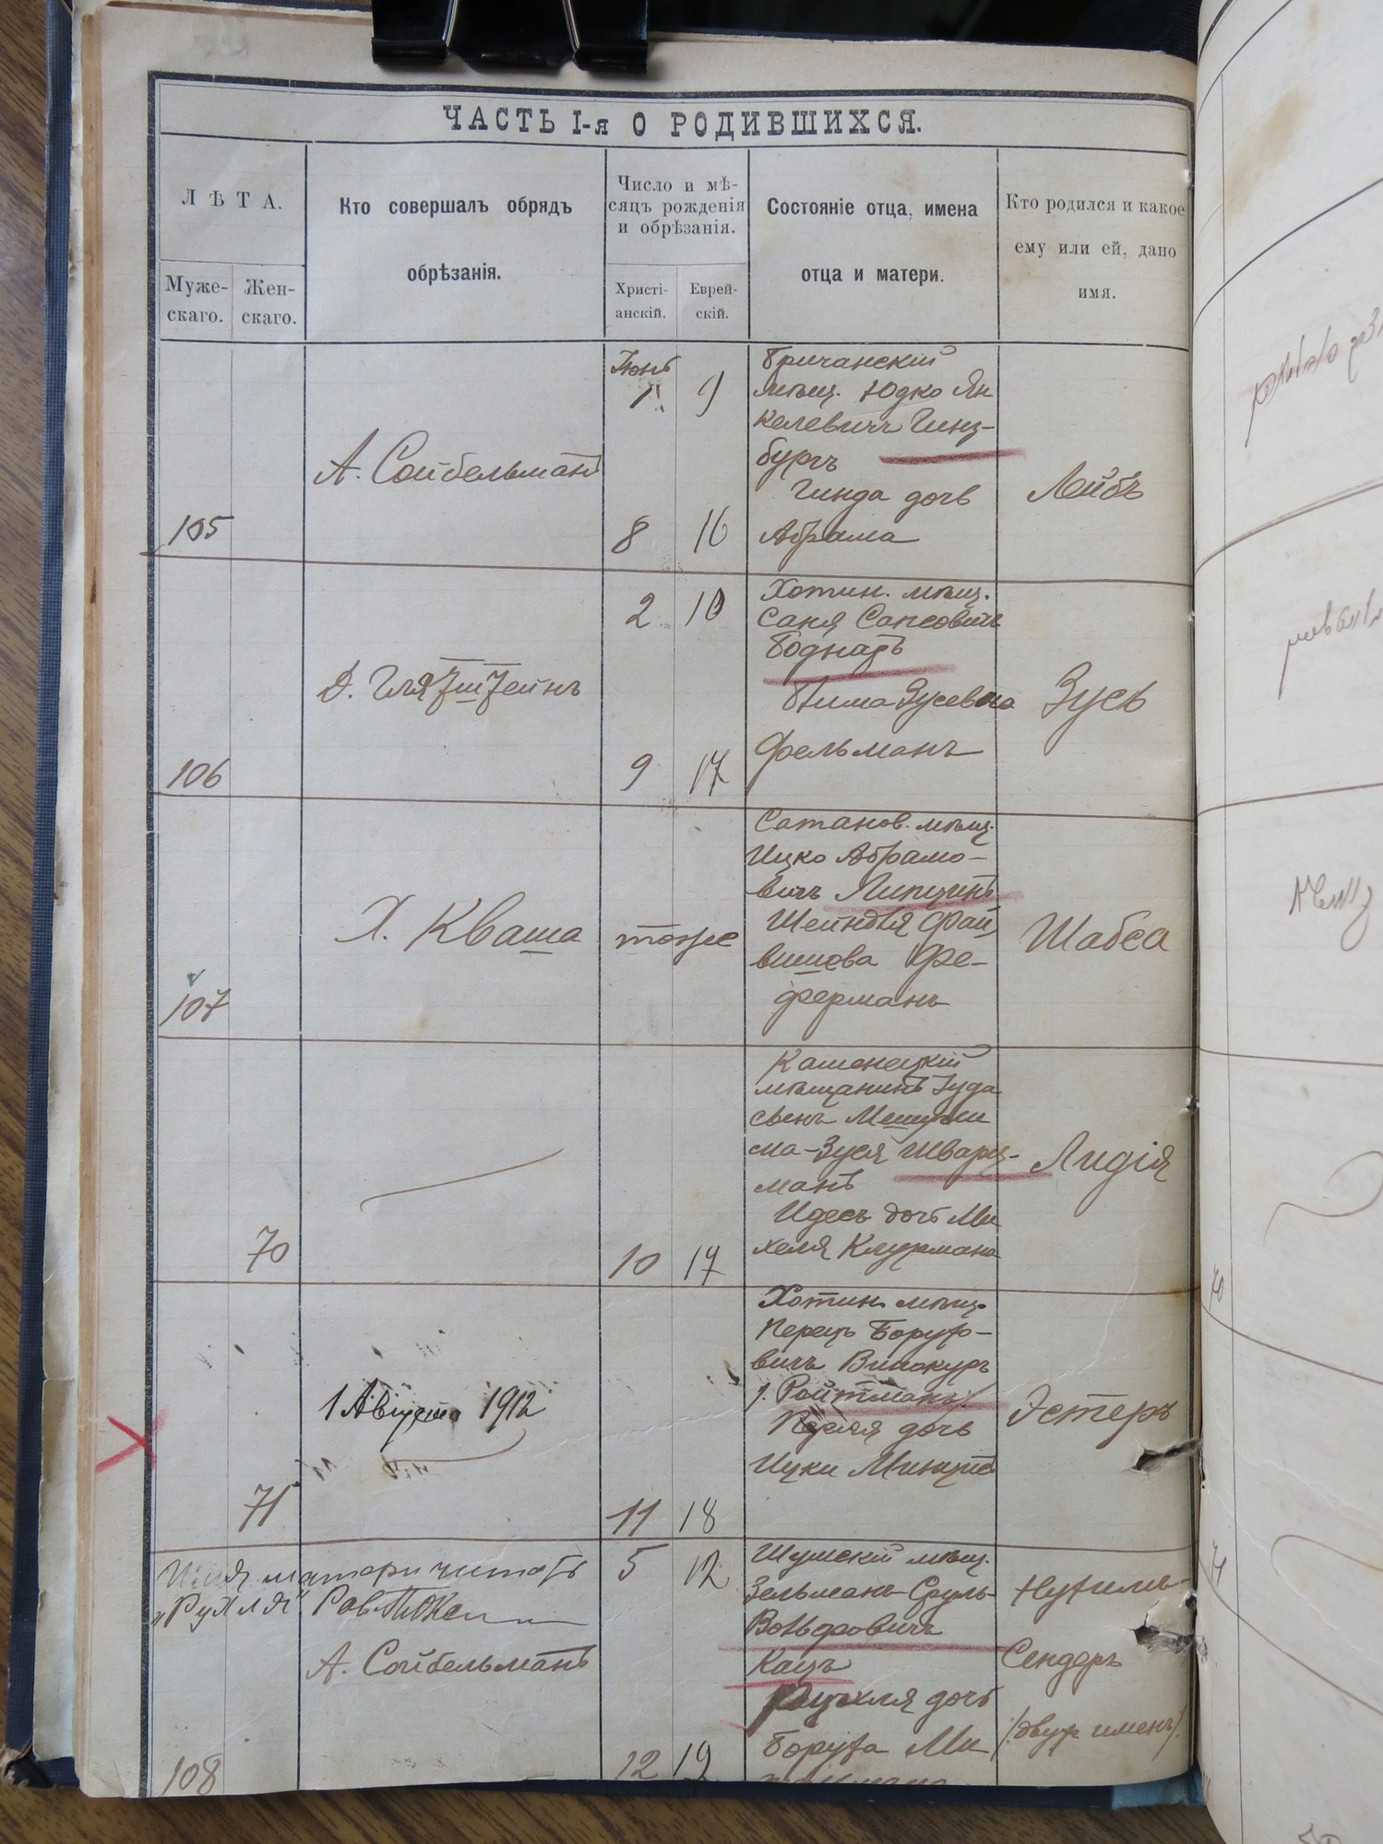 ЧАСТЬ I-я О РОДИВШИХСЯ.
ЛѢТА.
Муже-
скаго.
Жен-
скаго.
Кто совершалъ обрядъ
обрѣзанія.
Число и мѣ-
сяцъ рожденія
и обрѣзанія.
Христі-
анскій.
Еврей-
скій.
Состояніе отца, имена
отца и матери.
Кто родился и какое
ему или ей, дано
имя.
105
А. Сойбельманъ
Іюнь
1 9
8 16
Бричанскій
мѣщ. Юдко Ян
келевичъ Гинз-
бургъ
Гинда дочь
Абрама
Лейбъ
106
2 10
9 17
Хотин. мѣщ.
Саня Сапсовичъ
Боднаръ
Зусевна
Фельманъ
Зусь
107
Х. Кваша
тоже
Сатанов. мѣщ.
Ицко Абрамо-
вичъ Липцинъ
Шейндля Фай
вишова Фе-
ферманъ
Шабса
70
10 17
Каменецкій
мѣщанинъ Іуда
сынъ Мешули
ма-Зуся Шварц-
манъ
Идесъ дочь Ми
хеля Клурмана
Лидія
71
1 Августа 1912
11 18
Хотин. мѣщ.
Перецъ Борухо-
вичъ Винокуръ
(Ройтманъ)
дочь
Ицки
Эстеръ
Имя матери читать
"Рухля" Рав.
5 12
А. Сойбельманъ
108
12 19
Шумскій мѣщ.
Зельманъ-Сруль-
Вольфовичъ
Кацъ
Рухля дочь
Боруха Ми
Нухимъ-
Сендеръ
(двухъ именъ)